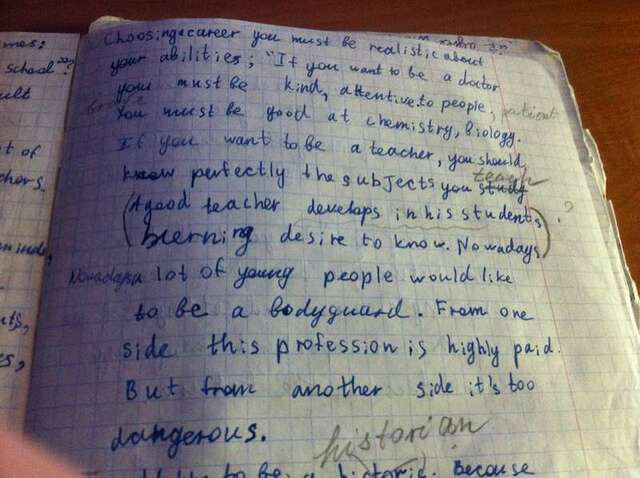 mes;
school?
ult
t of
chors
minds,
nts,
es,
Choosing a career you must be realistic about
your abilities; "If you want to be a doctor
you must be kind, attentive to people, patient
You must be good at chemistry, biology.
If you want to be a teacher, you should
know perfectly the subjects you study teach
(A good teacher develops in his students
burning desire to know. Nowadays) ?
Nowadays a lot of young people would like
to be a bodyguard. From one
side this profession is highly paid.
But from another side it's too
dangerous.
historian
like to be a historic. Because